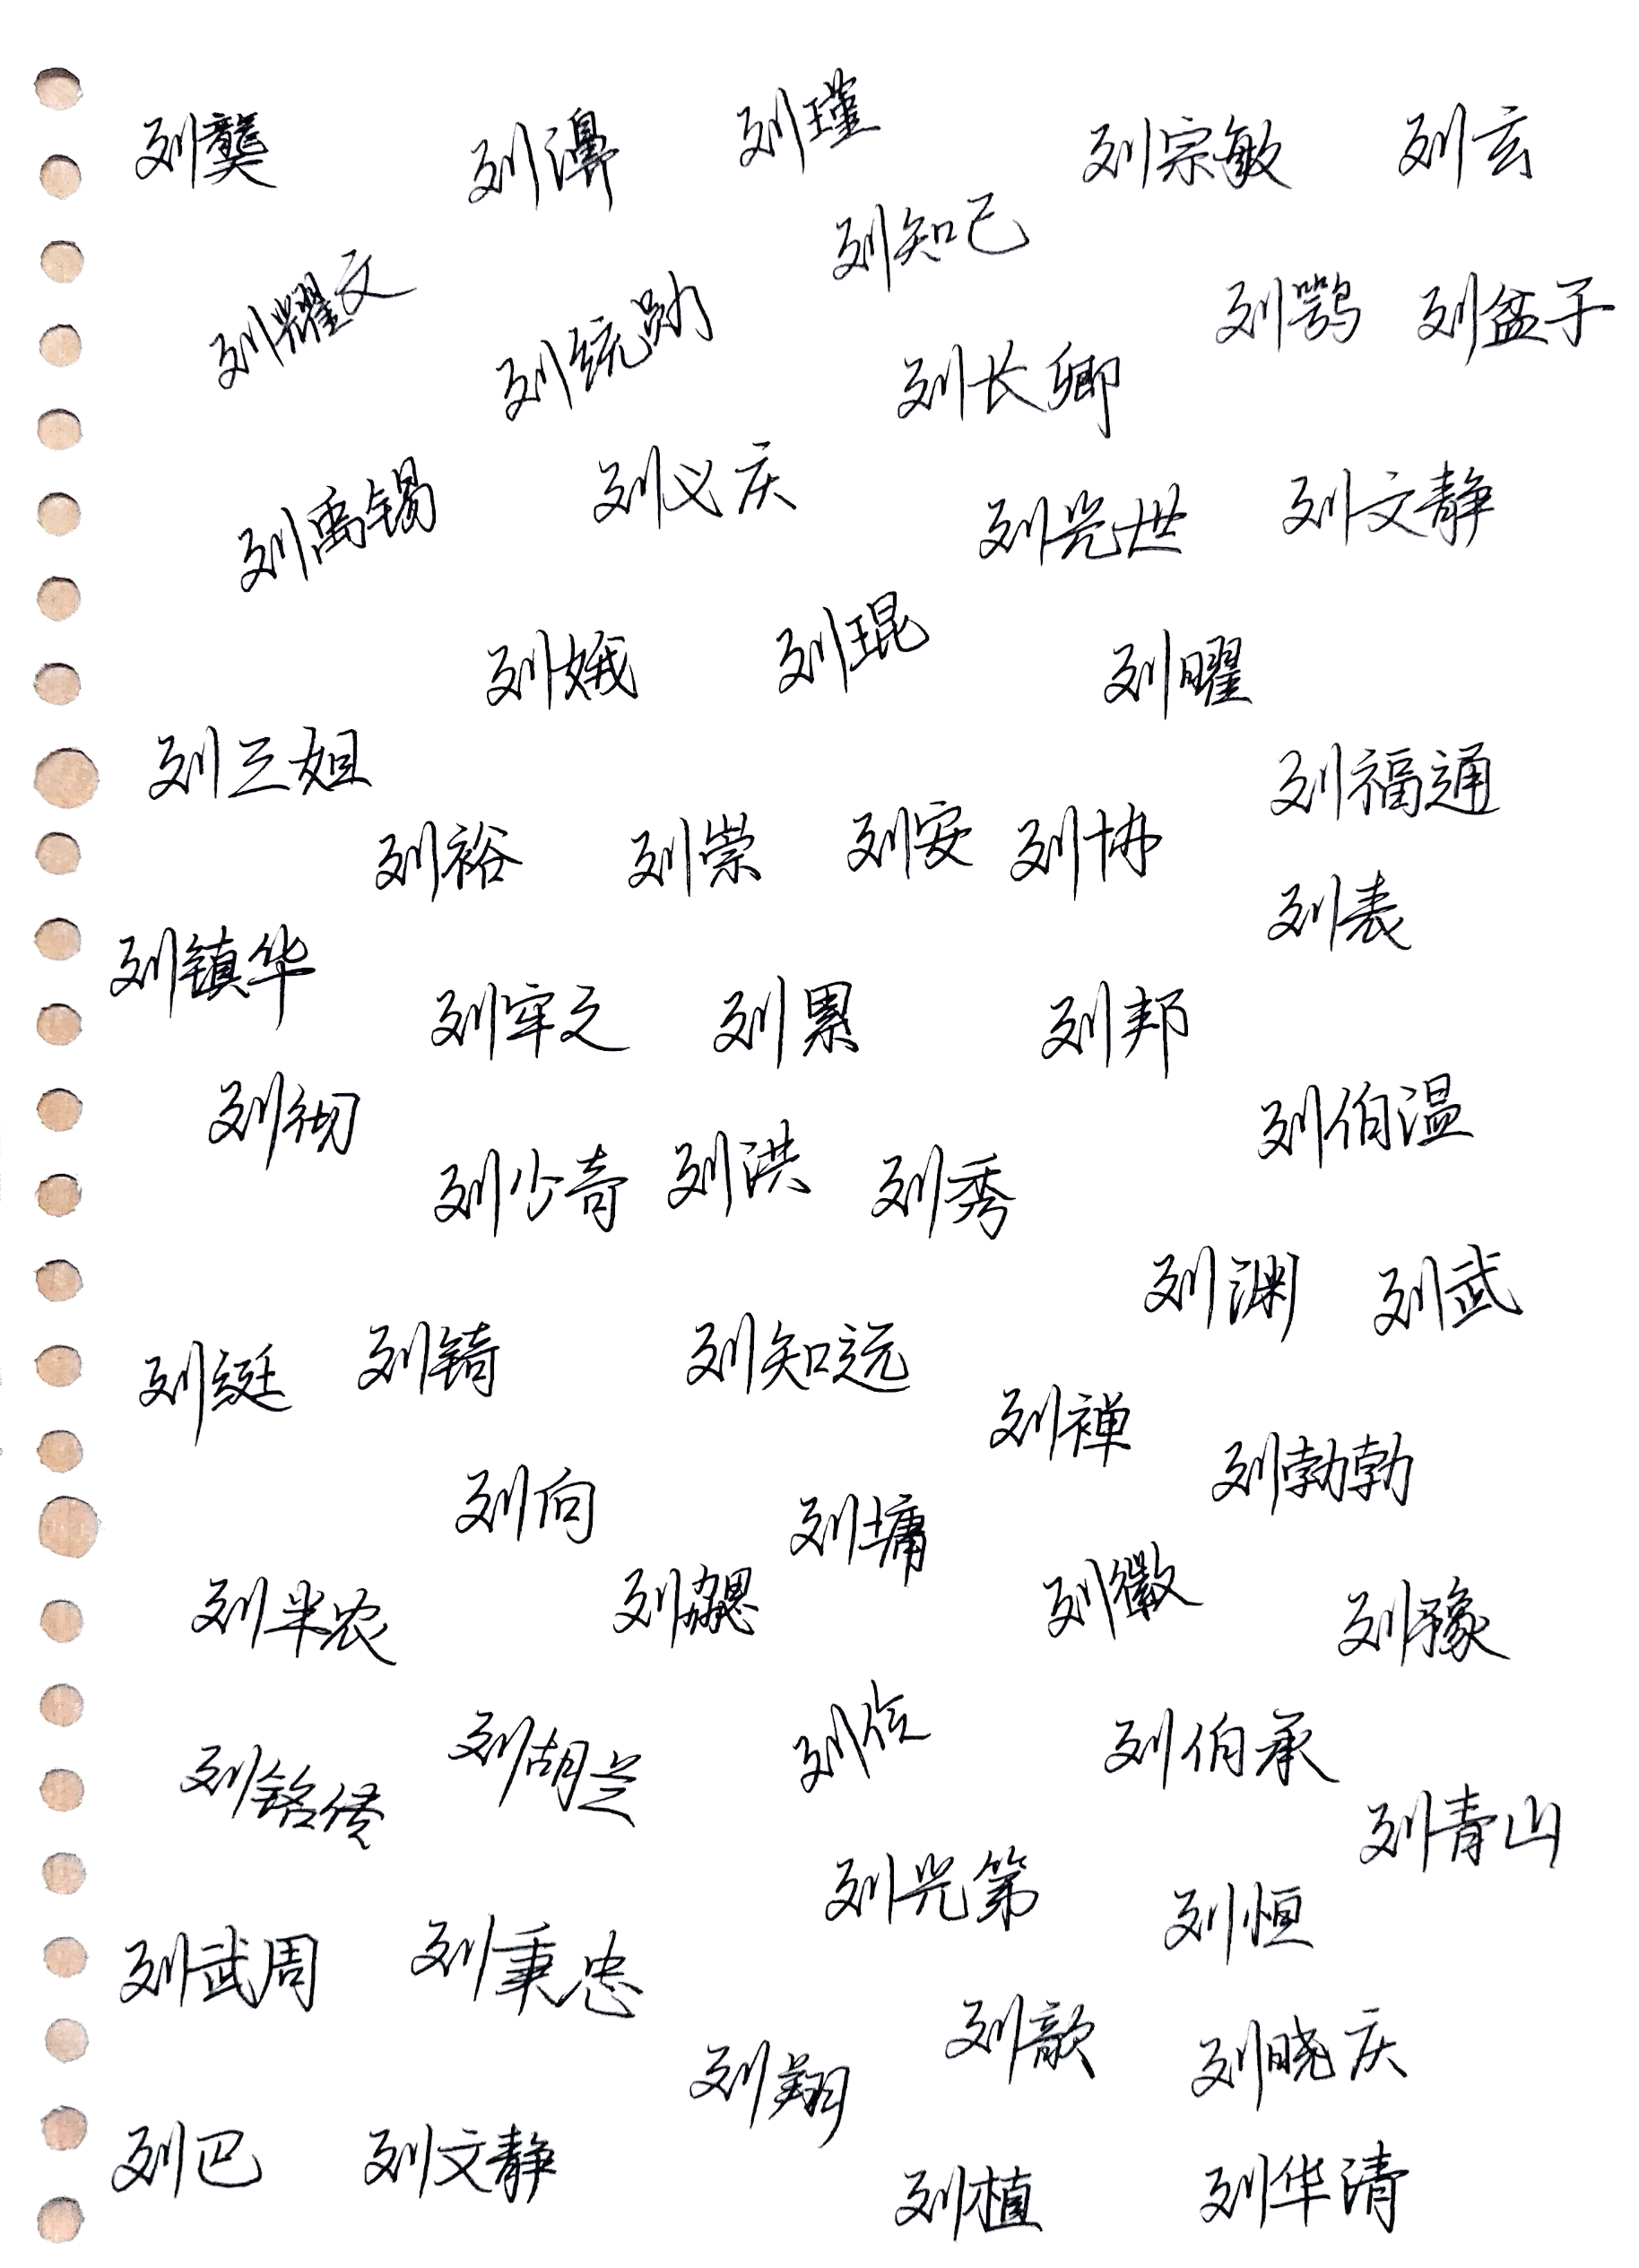 刘龑 刘濞 刘瑾 刘宗敏 刘玄
刘知己
刘耀文 刘统勋 刘长卿 刘鹗 刘盆子
刘禹锡 刘义庆 刘光世 刘文静
刘娥 刘琨 刘曜
刘三姐 刘福通
刘裕 刘崇 刘安 刘协
刘表
刘镇华 刘牢之 刘累 刘邦
刘彻 刘伯温
刘少奇 刘洪 刘秀
刘渊 刘武
刘綎 刘锜 刘知远
刘禅 刘勃勃
刘向 刘墉
刘半农 刘勰 刘徽 刘豫
刘铭传 刘胡兰 刘伶 刘伯承
刘青山
刘光第 刘恒
刘武周 刘秉忠
刘歆 刘晓庆
刘翔
刘巴 刘文静
刘植 刘华清